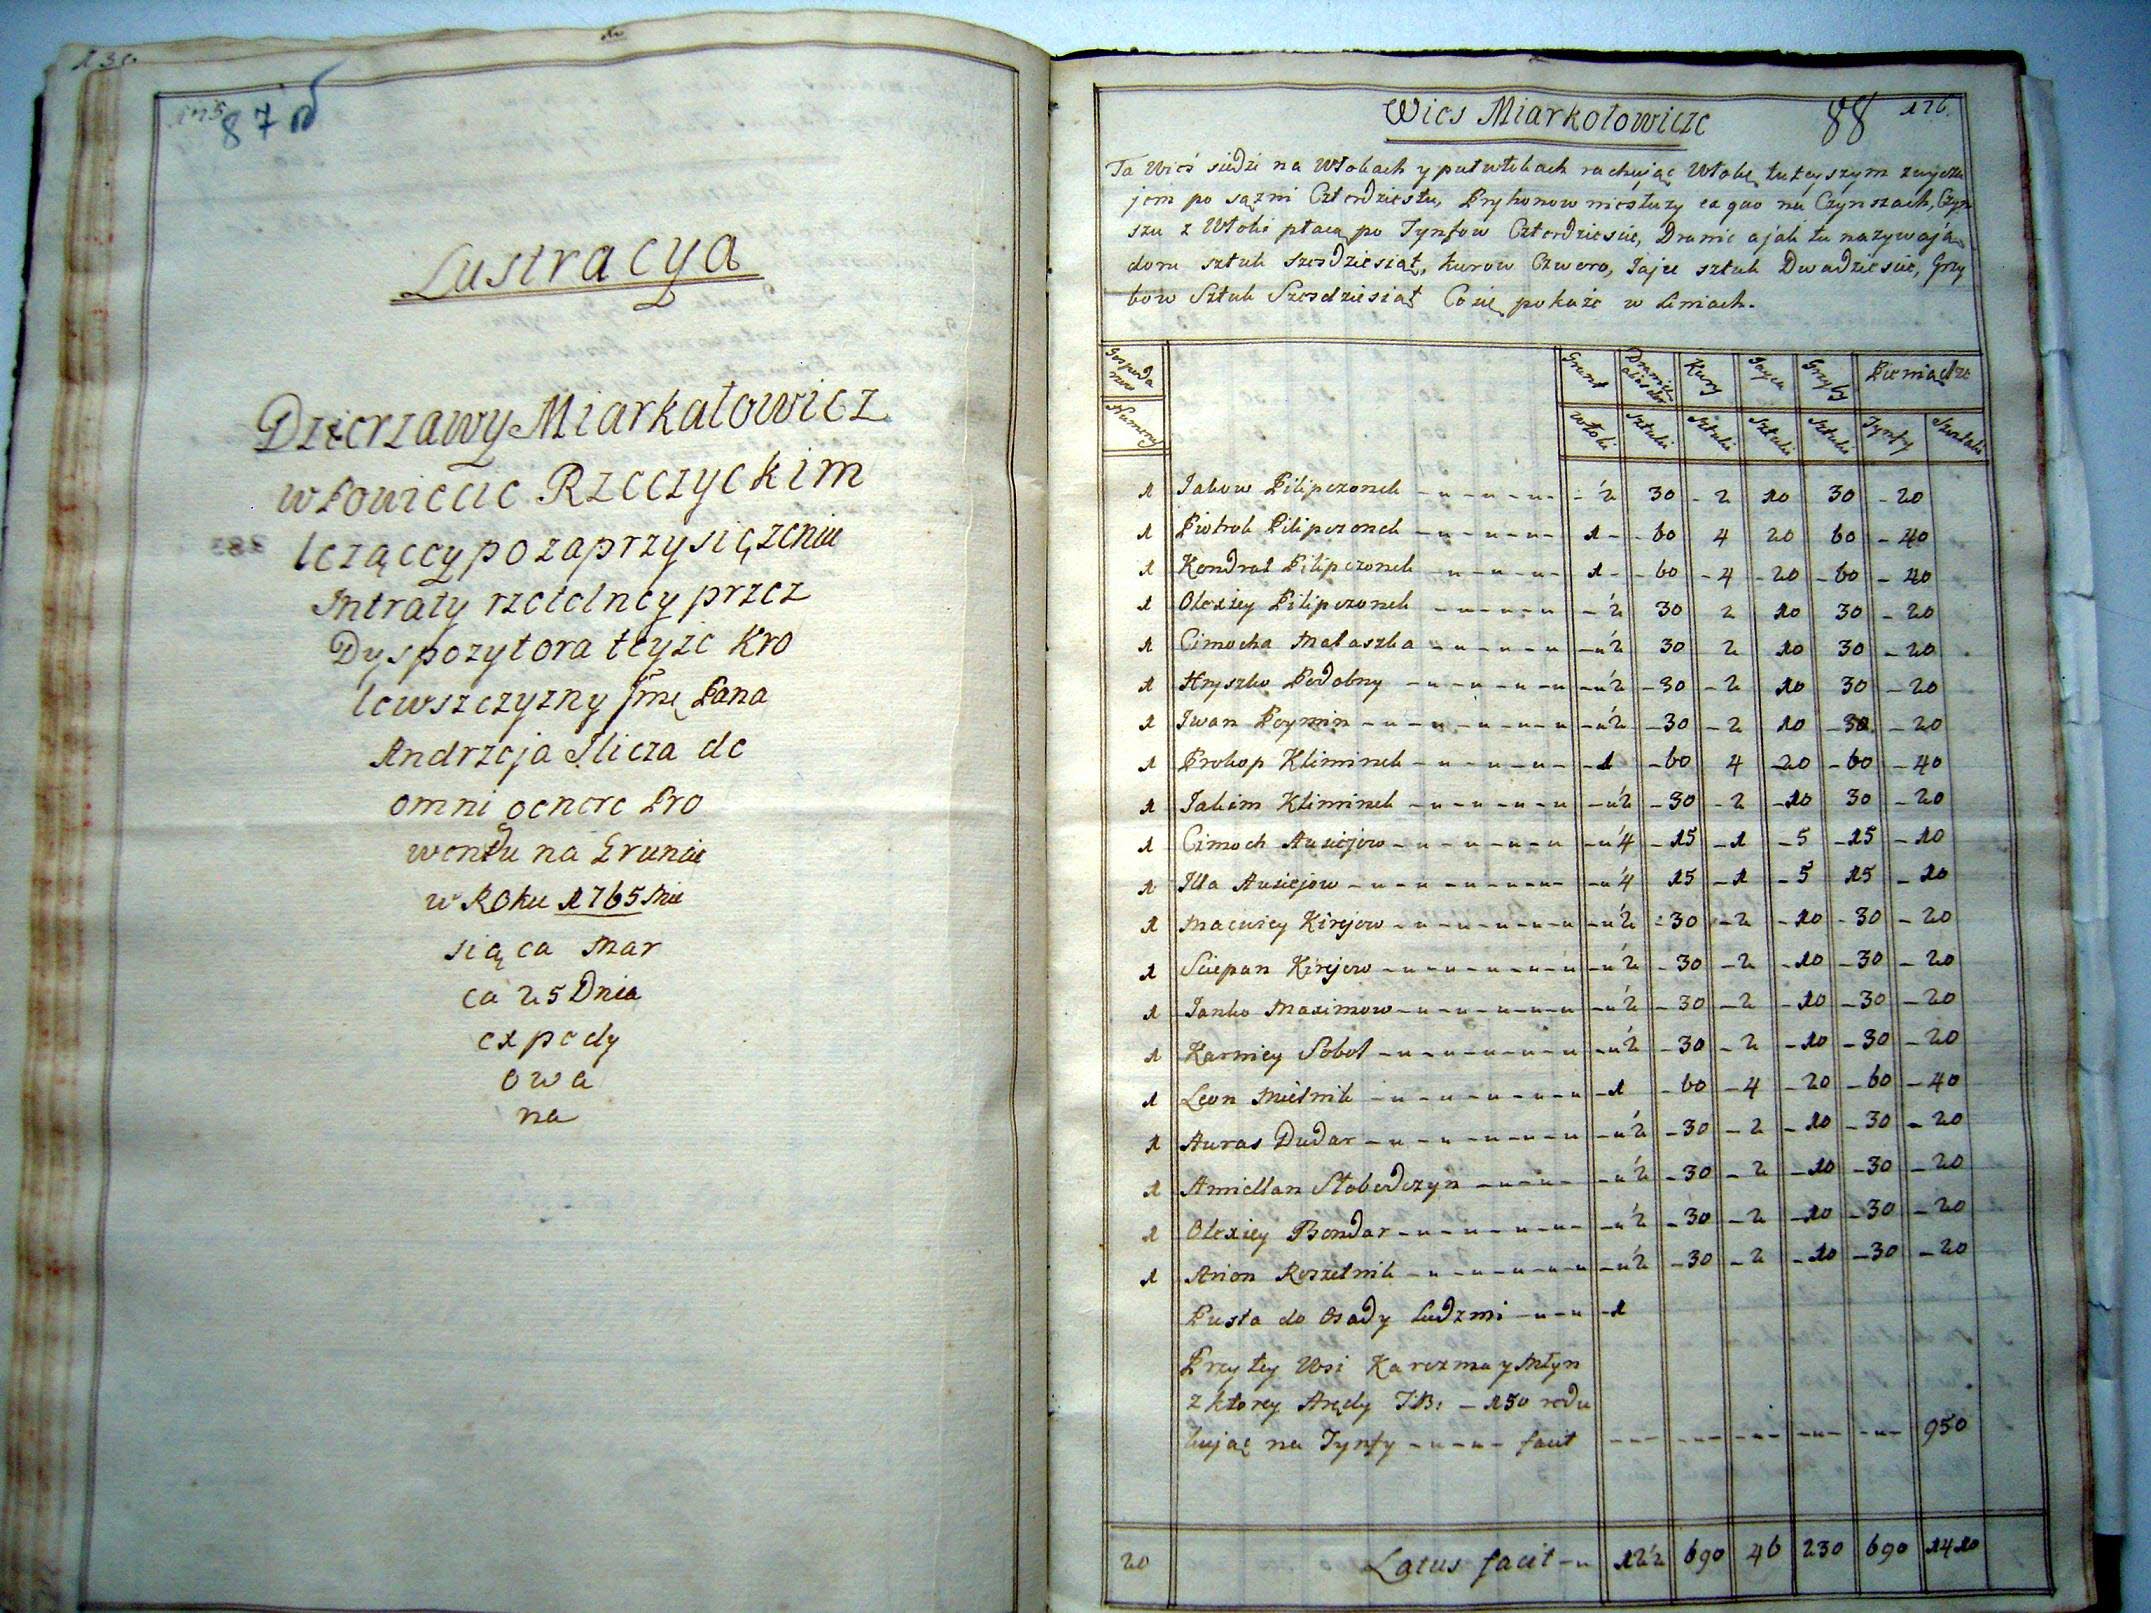 130
175
87 б
Lustracya
Dzierzawy Miarkałowicz
w Powiecie Rzeczyckim
lezącey po zaprzysięzeniu
Intraty rzetelney przez
Dyspozytora teyze Kro
lewszczyzny Jmę Pana
Andrzeja Ilicza de
omni genere Pro
wentu na Gruncie
w Roku 1765 Mie
siąca Mar
ca 25 Dnia
expedy
owa
na
Wies Miarkołowicze 88 176.
Ta Wieś siedzi na Włokach y puł włokach rachując Włokę tuteyszym zwycza
jem po sązni Czterdziestu, Prykonow niesłuzy ea quo na Czynszach, Czyn
szu z Włoki płacą po Tynfow Czterdziescie, Dranic a jak tu nazywają
doru sztuk szesdziesiąt, kurow Czworo, Jaje sztuk Dwadziescie, Grzy
bow Sztuk Szesdziesiąt Co się pokaże w Liniach.
Gospoda rzow Grunt Dranice alias dor Kury Jayca Grzyby Pieniądze
Numery Włoki Sztuki Sztuki Sztuki Sztuki Tynfy Szelągi
1 Jakow Pilipczonek - ½ 30 - 2 10 30 - 20
1 Piotrok Pilipczonek 1 - - 60 4 20 60 - 40
1 Kondrat Pilipczonek 1 - - 60 - 4 - 20 - 60 - 40
1 Olexiey Pilipczonek - ½ 30 2 10 30 - 20
1 Cimocha Mataszka - ½ 30 2 10 30 - 20
1 Hryszko Podobny - ½ - 30 - 2 10 30 - 20
1 Iwan Poymin - ½ - 30 - 2 10 - 30 - 20
1 Prokop Kliminek - 1 - 60 4 - 20 - 60 - 40
1 Jakim Kliminek - ½ - 30 - 2 - 10 30 - 20
1 Cimoch Ausiejow - ¼ - 15 - 1 - 5 - 15 - 10
1 Illa Ausiejow - ¼ 15 - 1 - 5 15 - 10
1 Macwiey Kirejow - ½ - 30 - 2 - 10 - 30 - 20
1 Sciepan Kirejow - ½ - 30 - 2 - 10 - 30 - 20
1 Janko Maximow - ½ - 30 - 2 - 10 - 30 - 20
1 Karniey Sobol - ½ - 30 - 2 - 10 - 30 - 20
1 Leon Mielnik - 1 - 60 - 4 - 20 - 60 - 40
1 Auras Dudar - ½ - 30 - 2 - 10 - 30 - 20
1 Amiellan Słobodczyn - ½ - 30 - 2 - 10 - 30 - 20
1 Olexiey Bondar - ½ - 30 - 2 - 10 - 30 - 20
1 Arion Reszetnik - ½ - 30 - 2 - 10 - 30 - 20
Pusta do Osady Ludzmi - 1
Przy tey Wsi Karczma y Młyn
z ktorey Arędy TB: - 150 redu
kując na Tynfy - - - facit 950
20 Latus facit - 12½ 690 46 230 690 1410